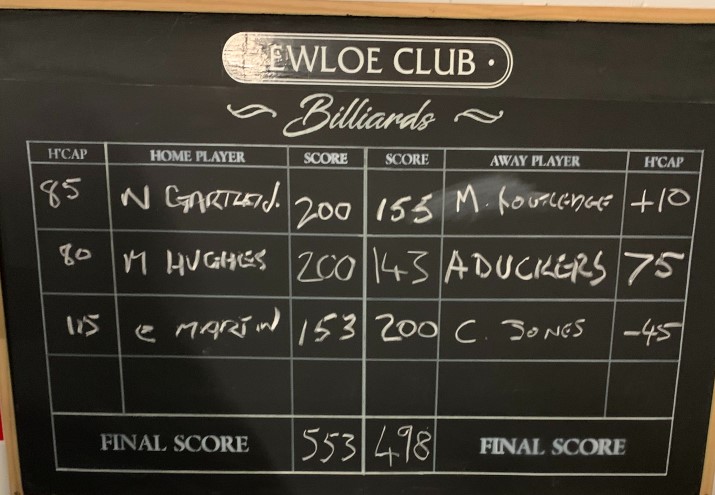 EWLOE CLUB ·
Billiards
H'CAP HOME PLAYER SCORE SCORE AWAY PLAYER H'CAP
85 N 200 155 M. +10
80 M HUGHES 200 143 A DUCKERS 75
115 C MARTIN 153 200 C. JONES -45
FINAL SCORE 553 498 FINAL SCORE